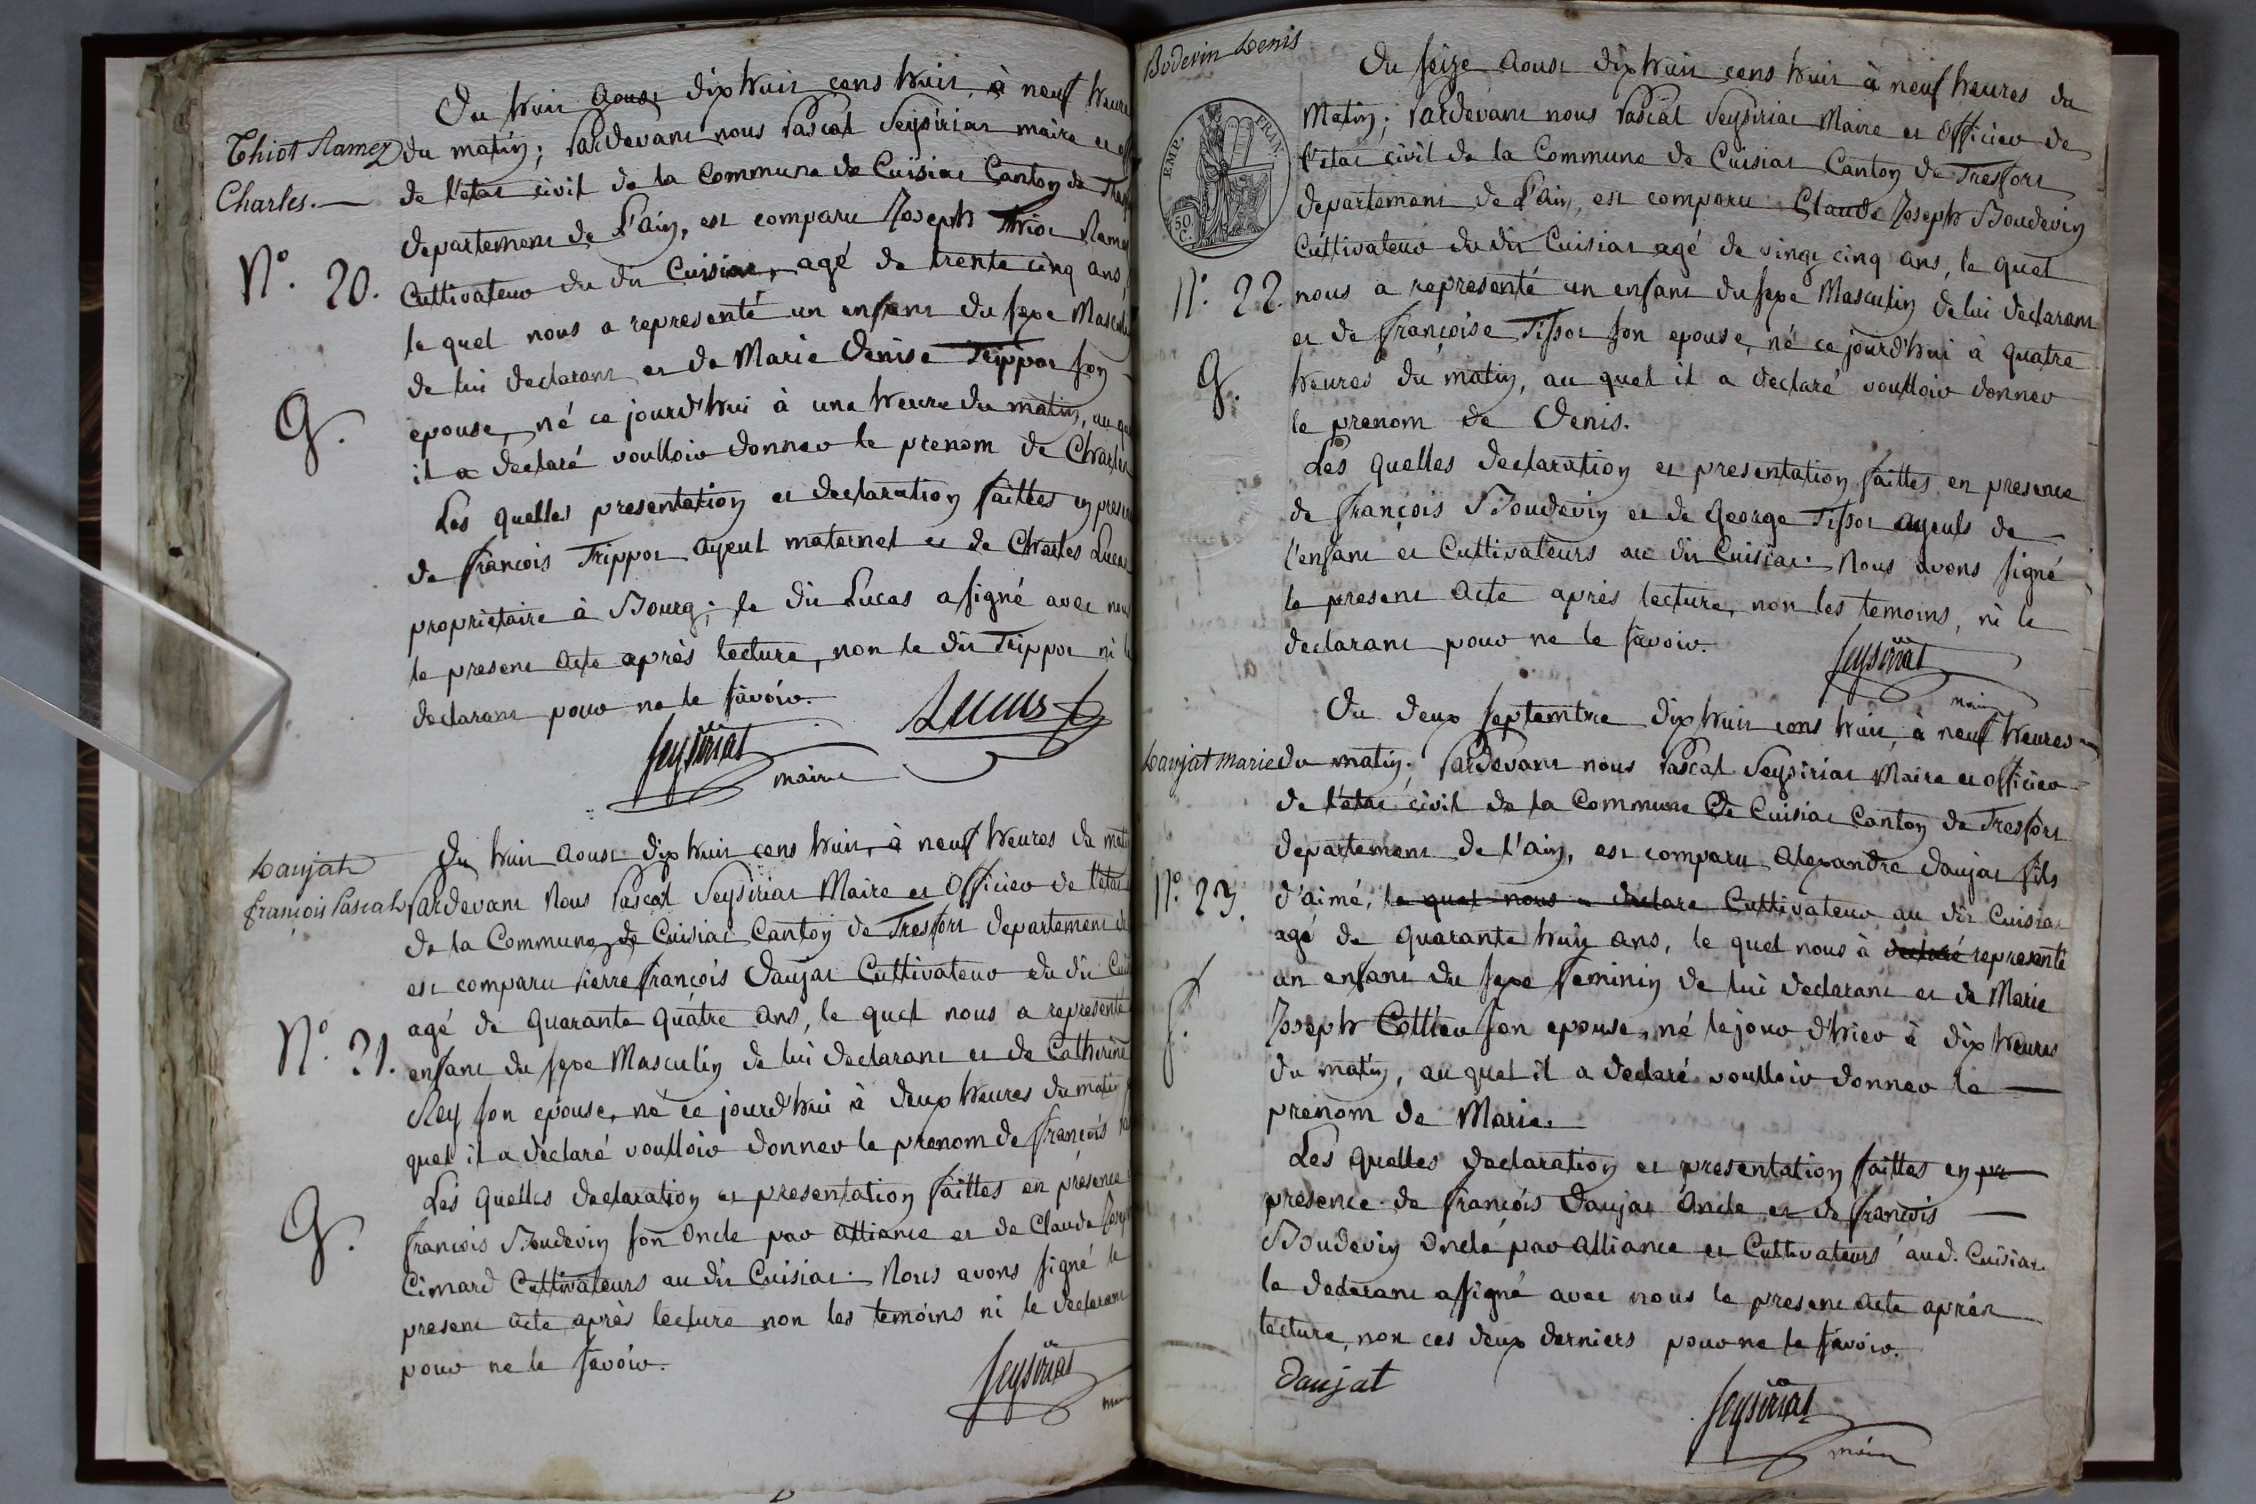 Thiot Ramez
Charles.
N.º 20.
G.
Du huit aoust dix huit cens huit, à neuf heures
du matin; Pardevant nous Pascal Seysiriat maire et
de l'etat civil de la Commune de Cuisiat Canton de
departement de l'ain, est comparu Joseph Thiot Ramez
Cultivateur du dit Cuisiat, agé de trente cinq ans,
le quel nous a representé un enfant du sexe Masculin
de lui declarant et de Marie Denise Trippot son
epouse, né ce jourd'hui à une heure du matin, au quel
il a declaré voulloir donner le prenom de Charles
Les quelles presentation et declaration faittes en presence
de françois Trippot ayeul maternel et de Charles Lucas
propriétaire à Bourg; le dit Lucas a signé avec nous
le present acte après lecture, non le dit Trippot ni le
declarant pour ne le savoir.
Lucas
Seysiriat
maire
Daujat
françois Pascal
N.º 21.
G.
Du huit aoust dix huit cens huit, à neuf heures du matin
Pardevant Nous Pascal Seysiriat Maire et Officier de l'etat
de la Commune de Cuisiat Canton de Tresfort departement de
est comparu Pierre françois Daujat Cultivateur du dit
agé de quarante quatre ans, le quel nous a representé
enfant du sexe Masculin de lui declarant et de Catherine
Rey son epouse, né ce jourd'hui à deux heures du matin
quel il a declaré voulloir donner le prenom de françois
Les quelles declaration et presentation faittes en presence
françois Boudevin son Oncle par alliance et de Claude Joseph
Cimard Cultivateurs au dit Cuisiat. Nous avons signé le
present acte après lecture non les temoins ni le declarant
pour ne le savoir.
Seysiriat
Bodevin Denis
EMP. FRAN.
50 C.
N.º 22.
G.
Du seize aoust dix huit cens huit à neuf heures du
Matin; Pardevant nous Pascal Seysiriat Maire et Officier de
l'etat civil de la Commune de Cuisiat Canton de Tresfort
departement de l'Ain, est comparu Claude Joseph Boudevin
Cultivateur du dit Cuisiat agé de vingt cinq ans, le quel
nous a representé un enfant du sexe Masculin de lui declarant
et de françoise Tissot son epouse, né ce jourd'hui à quatre
heures du matin, au quel il a declaré voulloir donner
le prenom de Denis.
Les quelles declaration et presentation faittes en presence
de françois Boudevin et de George Tissot ayeuls de
l'enfant et Cultivateurs au dit Cuisiat. Nous avons signé
le present acte après lecture, non les temoins, ni le
declarant pour ne le savoir.
Seysiriat
maire
Daujat Marie
N.º 23.
f.
Du deux septembre dix huit cens huit, à neuf heures
du matin; Pardevant nous Pascal Seysiriat Maire et officier
de l'etat civil de la Commune de Cuisiat Canton de Tresfort
departement de l'ain, est comparu Alexandre Daujat fils
d'aimé, le quel nous a declare Cultivateur au dit Cuisiat
agé de quarante huit ans, le quel nous à declaré representé
un enfant du sexe feminin de lui declarant et de Marie
Joseph Cottier son epouse, né le jour d'hier à dix heures
du matin, au quel il a declaré voulloir donner le
prenom de Marie.
Les quelles declaration et presentation faittes en pr
presence de françois Daujat Oncle et de françois
Boudevin Oncle par alliance et Cultivateurs aud. Cuisiat.
le declarant a signé avec nous le present acte après
lecture, non ces deux derniers pour ne le savoir.
Daujat
Seysiriat
maire